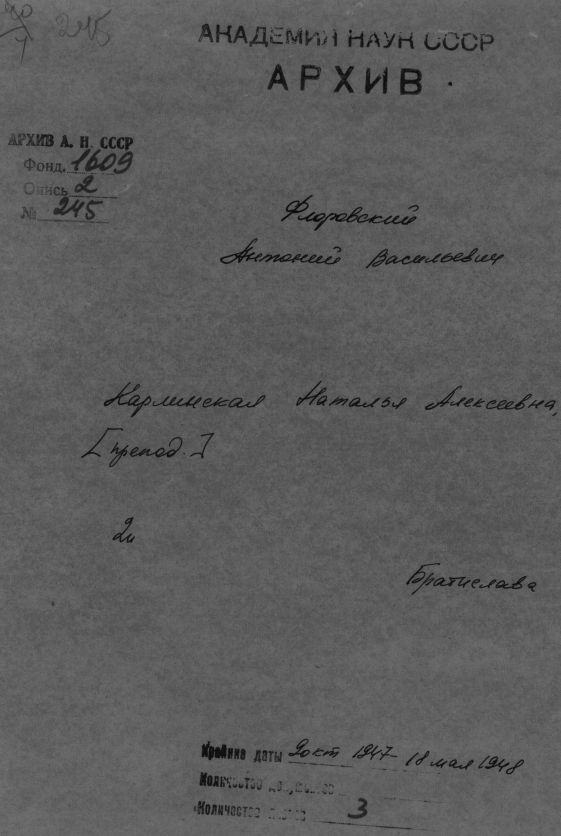 245
АКАДЕМИЯ НАУК СССР
АРХИВ
АРХИВ А. Н. СССР
Фонд. 1609
Опись 2
№ 245
Флоровский
Антоний Васильевич
Карлинская Наталья Алексеевна,
[препод.]
2п
Братислава
Крайние даты 9 окт 1947 - 18 мая 1948
Количество документов
Количество листов 3